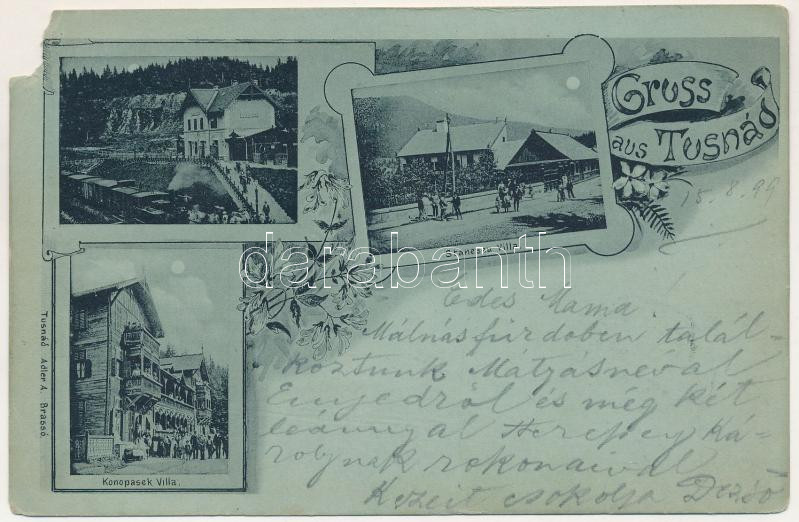 Gruss
aus Tusnád
15.8.99
Stanescu Villa.
Konopasek Villa.
Tusnád Adler A. Brassó.
darabanth
Édes Mama!
Málnásfürdőben talál-
koztunk Mátyásnéval
Enyedről és még két
leánnyal Herepey Ka-
rolynak rokonaival
Kezeit csokolja Dezső